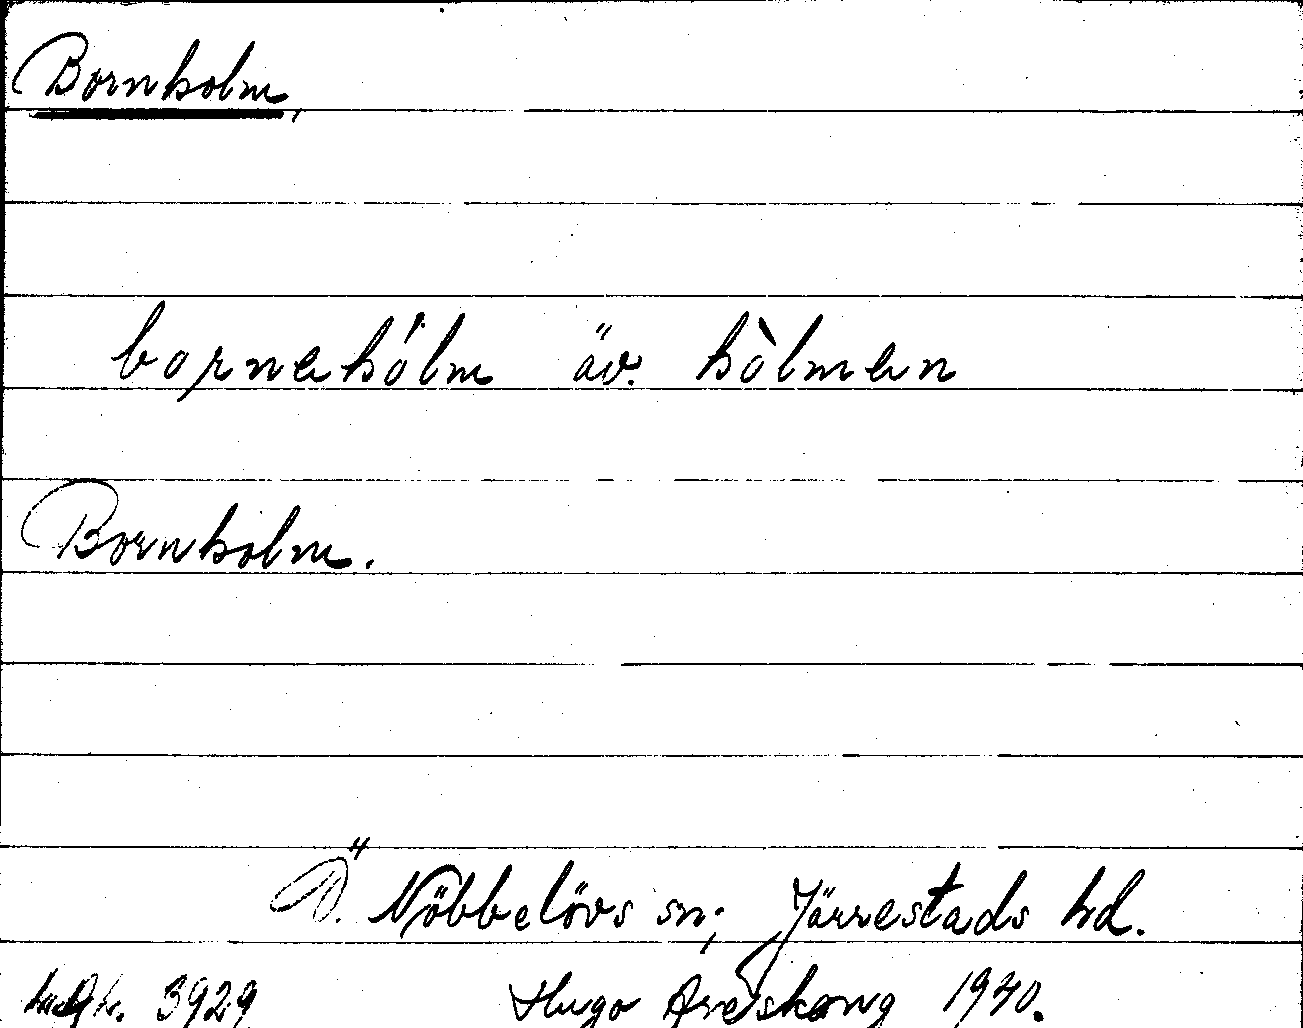 Bornholm,
bornahólm äv. hòlmen
Bornholm.
Ö. Nöbbelövs sn; Järrestads hd.
3929 Hugo Areskoug 1940.